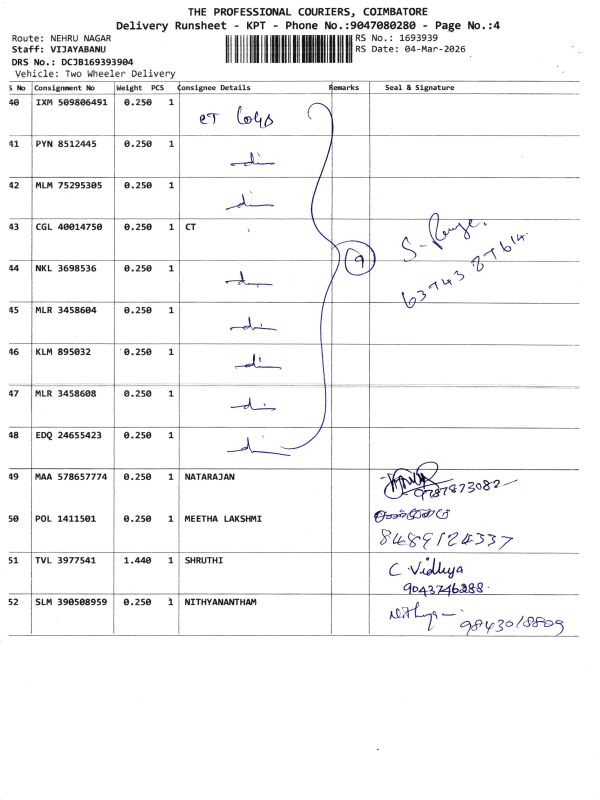 THE PROFESSIONAL COURIERS, COIMBATORE
Delivery Runsheet - KPT - Phone No.:9047080280 - Page No.:4
Route: NEHRU NAGAR RS No.: 1693939
Staff: VIJAYABANU RS Date: 04-Mar-2026
DRS No.: DCJB169393904
Vehicle: Two Wheeler Delivery
S No Consignment No Weight PCS Consignee Details Remarks Seal & Signature
40 IXM 509806491 0.250 1 CT
41 PYN 8512445 0.250 1
42 MLM 75295305 0.250 1
43 CGL 40014750 0.250 1 CT
9
44 NKL 3698536 0.250 1
45 MLR 3458604 0.250 1
46 KLM 895032 0.250 1
47 MLR 3458608 0.250 1
48 EDQ 24655423 0.250 1
49 MAA 578657774 0.250 1 NATARAJAN
9787873082
50 POL 1411501 0.250 1 MEETHA LAKSHMI
8489124337
51 TVL 3977541 1.440 1 SHRUTHI C Vidhya
9043746288
52 SLM 390508959 0.250 1 NITHYANANTHAM
9843018809